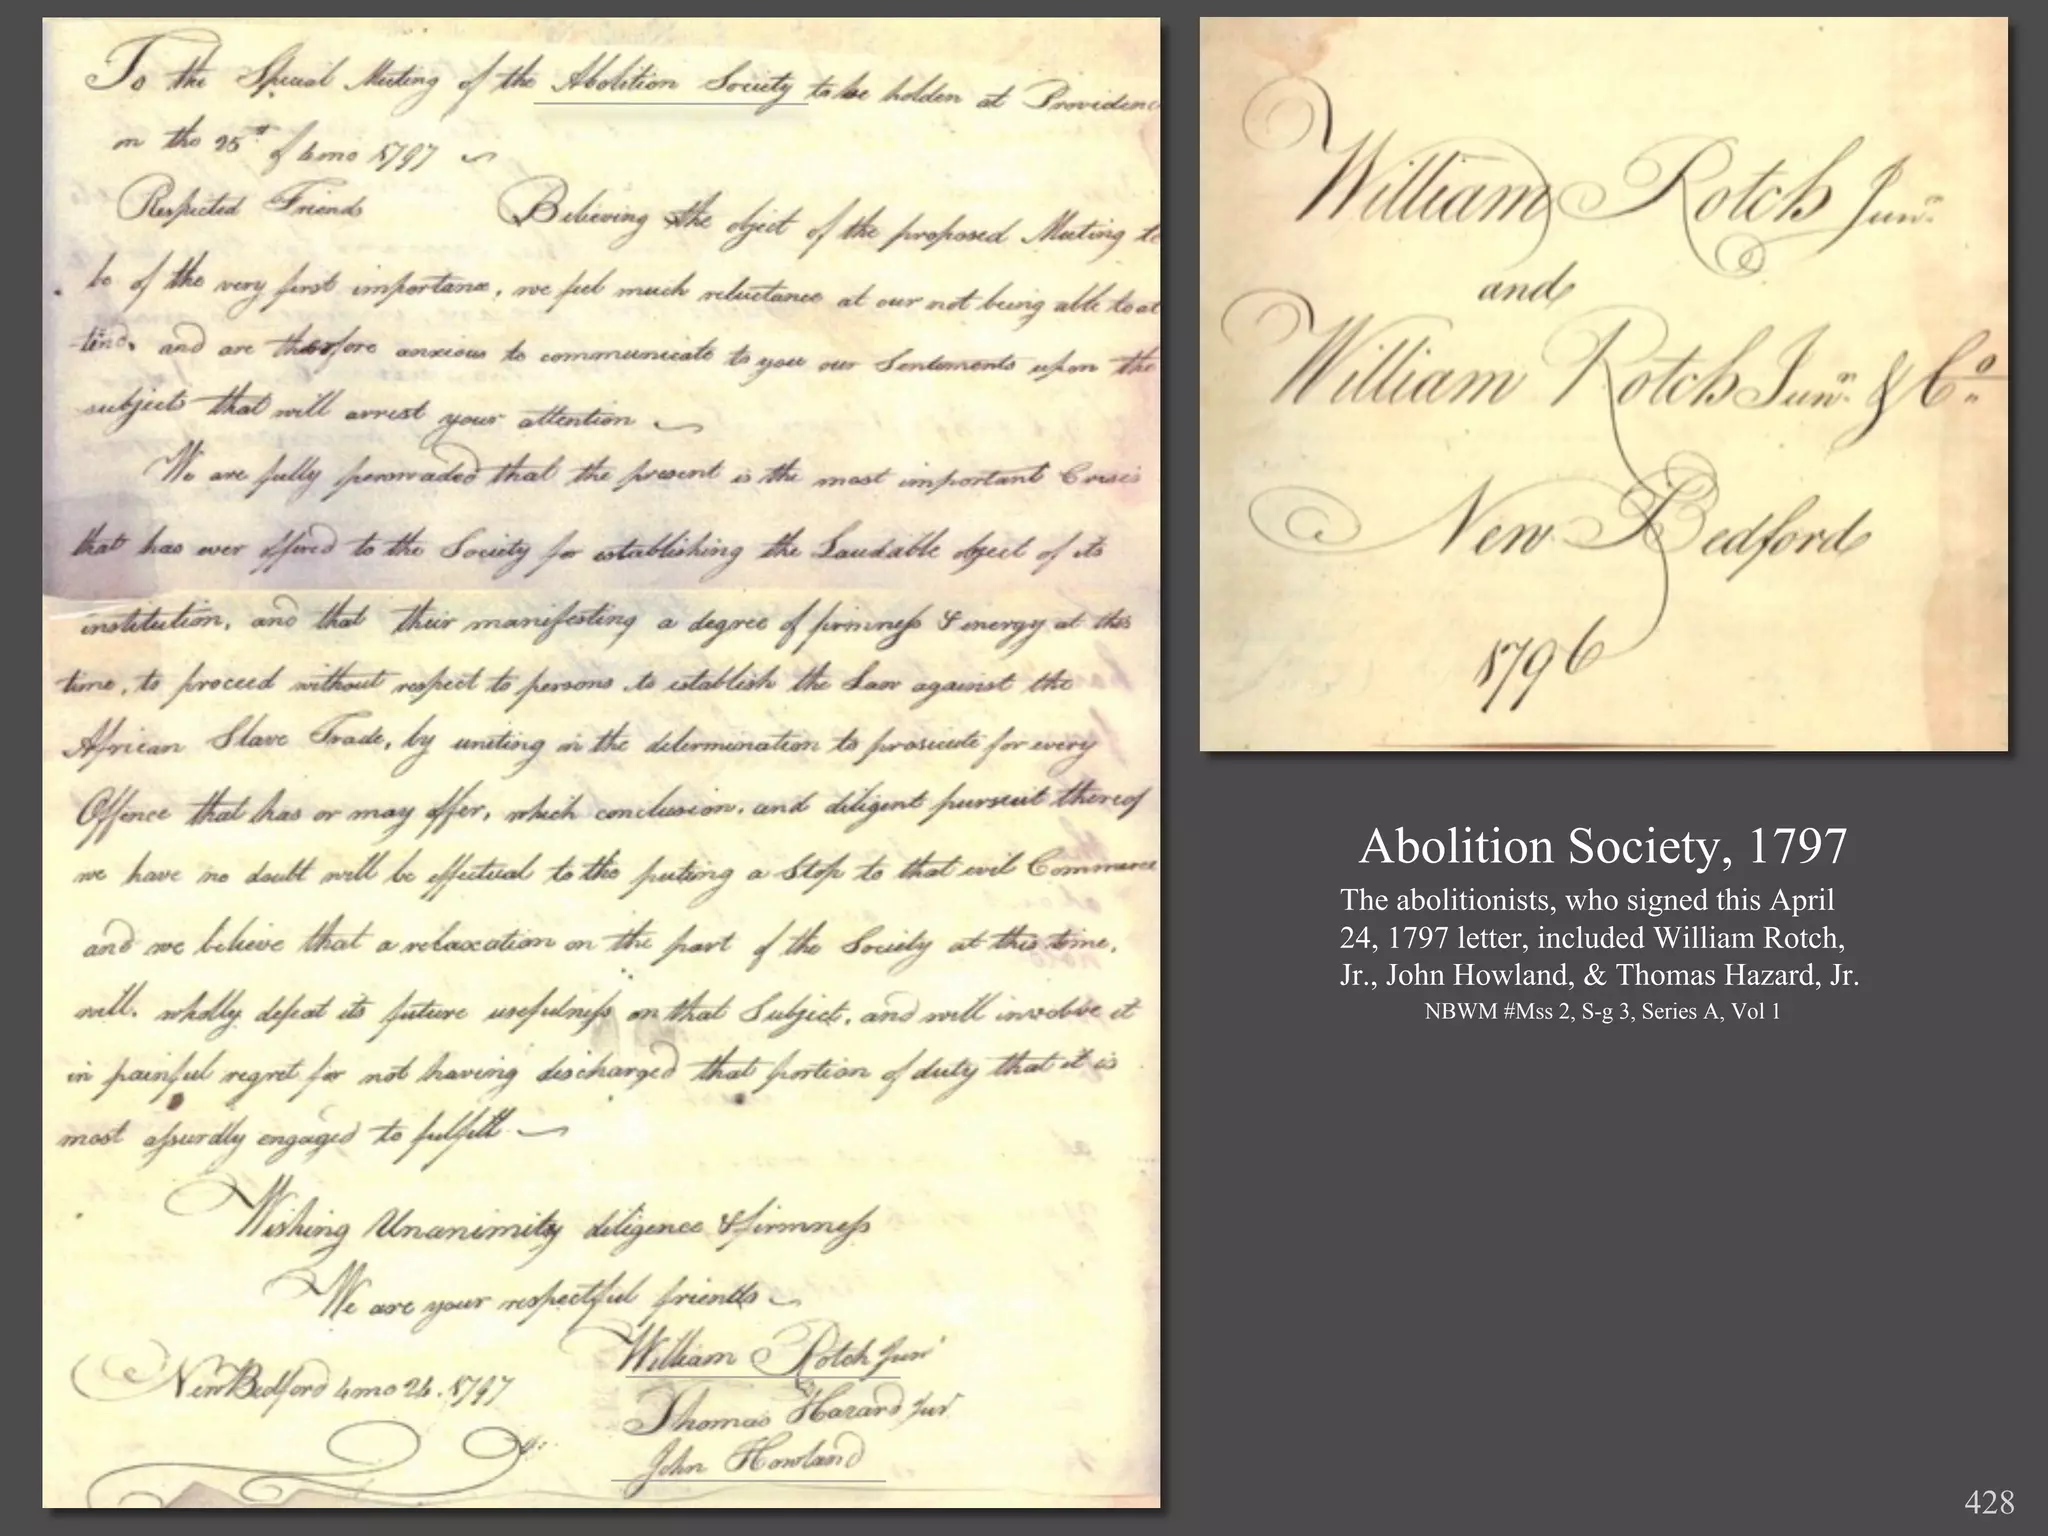 To the Special Meeting of the Abolition Society to be holden at Providenc
on the 25th of 4mo 1797
Respected Friends Believing the object of the proposed Meeting to
be of the very first importance, we feel much reluctance at our not being able to at
tend, and are therefore anxious to communicate to you our Sentiments upon the
subject that will arrest your attention
We are fully perswaded that the present is the most important Crisis
that has ever offered to the Society for establishing the Laudable object of its
institution, and that their manifesting a degree of firmness & energy at this
time, to proceed without respect to persons to establish the Law against the
African Slave Trade, by uniting in the determination to prosicute for every
Offence that has or may offer, which conclusion, and diligent pursuit thereof
we have no doubt will be effectual to the puting a Stop to that evil Commerce
and we believe that a relaxation on the part of the Society at this time,
will, wholly defeat its future usefulness on that Subject, and will involve it
in painful regret for not having discharged that portion of duty that it is
most engaged to fulfill
Wishing Unanimity diligence & firmness
We are your respectful friends
William Rotch Junr
New Bedford 4mo 24. 1797
Thomas Hazard Junr
John Howland
William Rotch Junr.
and
William Rotch Junr. & Co.
New Bedford
1796
Abolition Society, 1797
The abolitionists, who signed this April
24, 1797 letter, included William Rotch,
Jr., John Howland, & Thomas Hazard, Jr.
NBWM #Mss 2, S-g 3, Series A, Vol 1
428